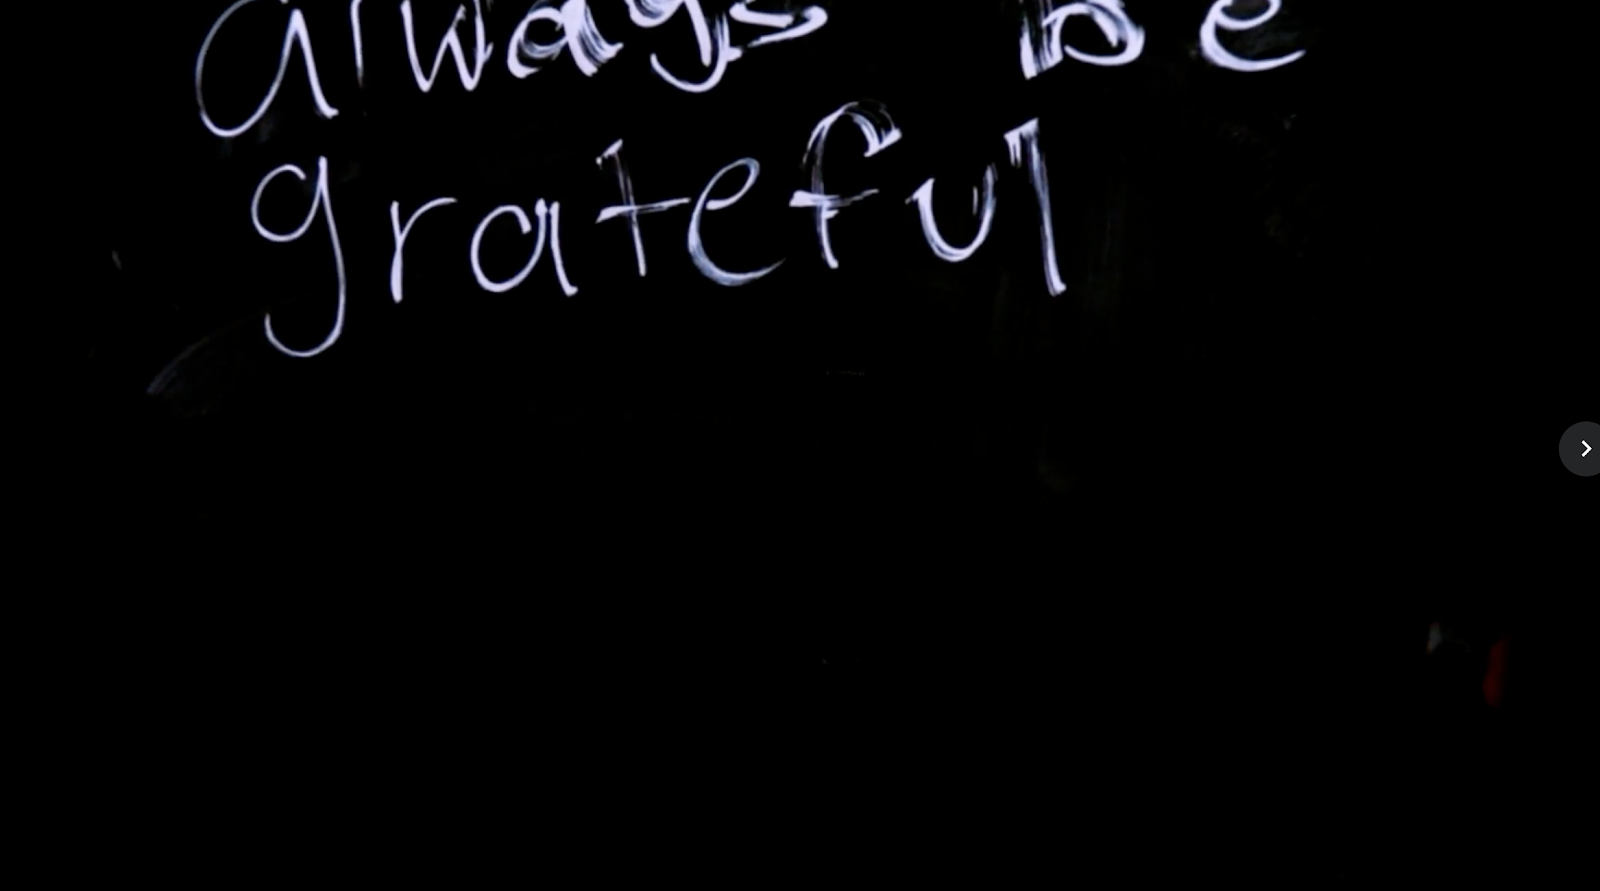 always be
grateful